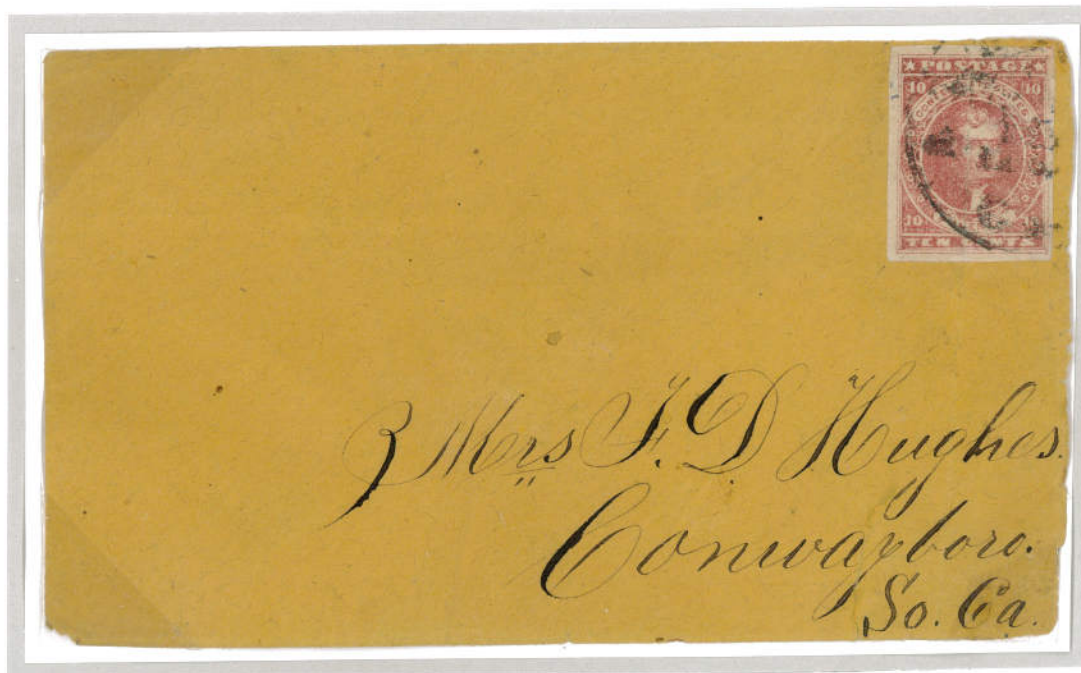 ★ POSTAGE ★
10 10
10 10
TEN CENTS
Mrs F. D Hughes.
Conwayboro.
So. Ca.